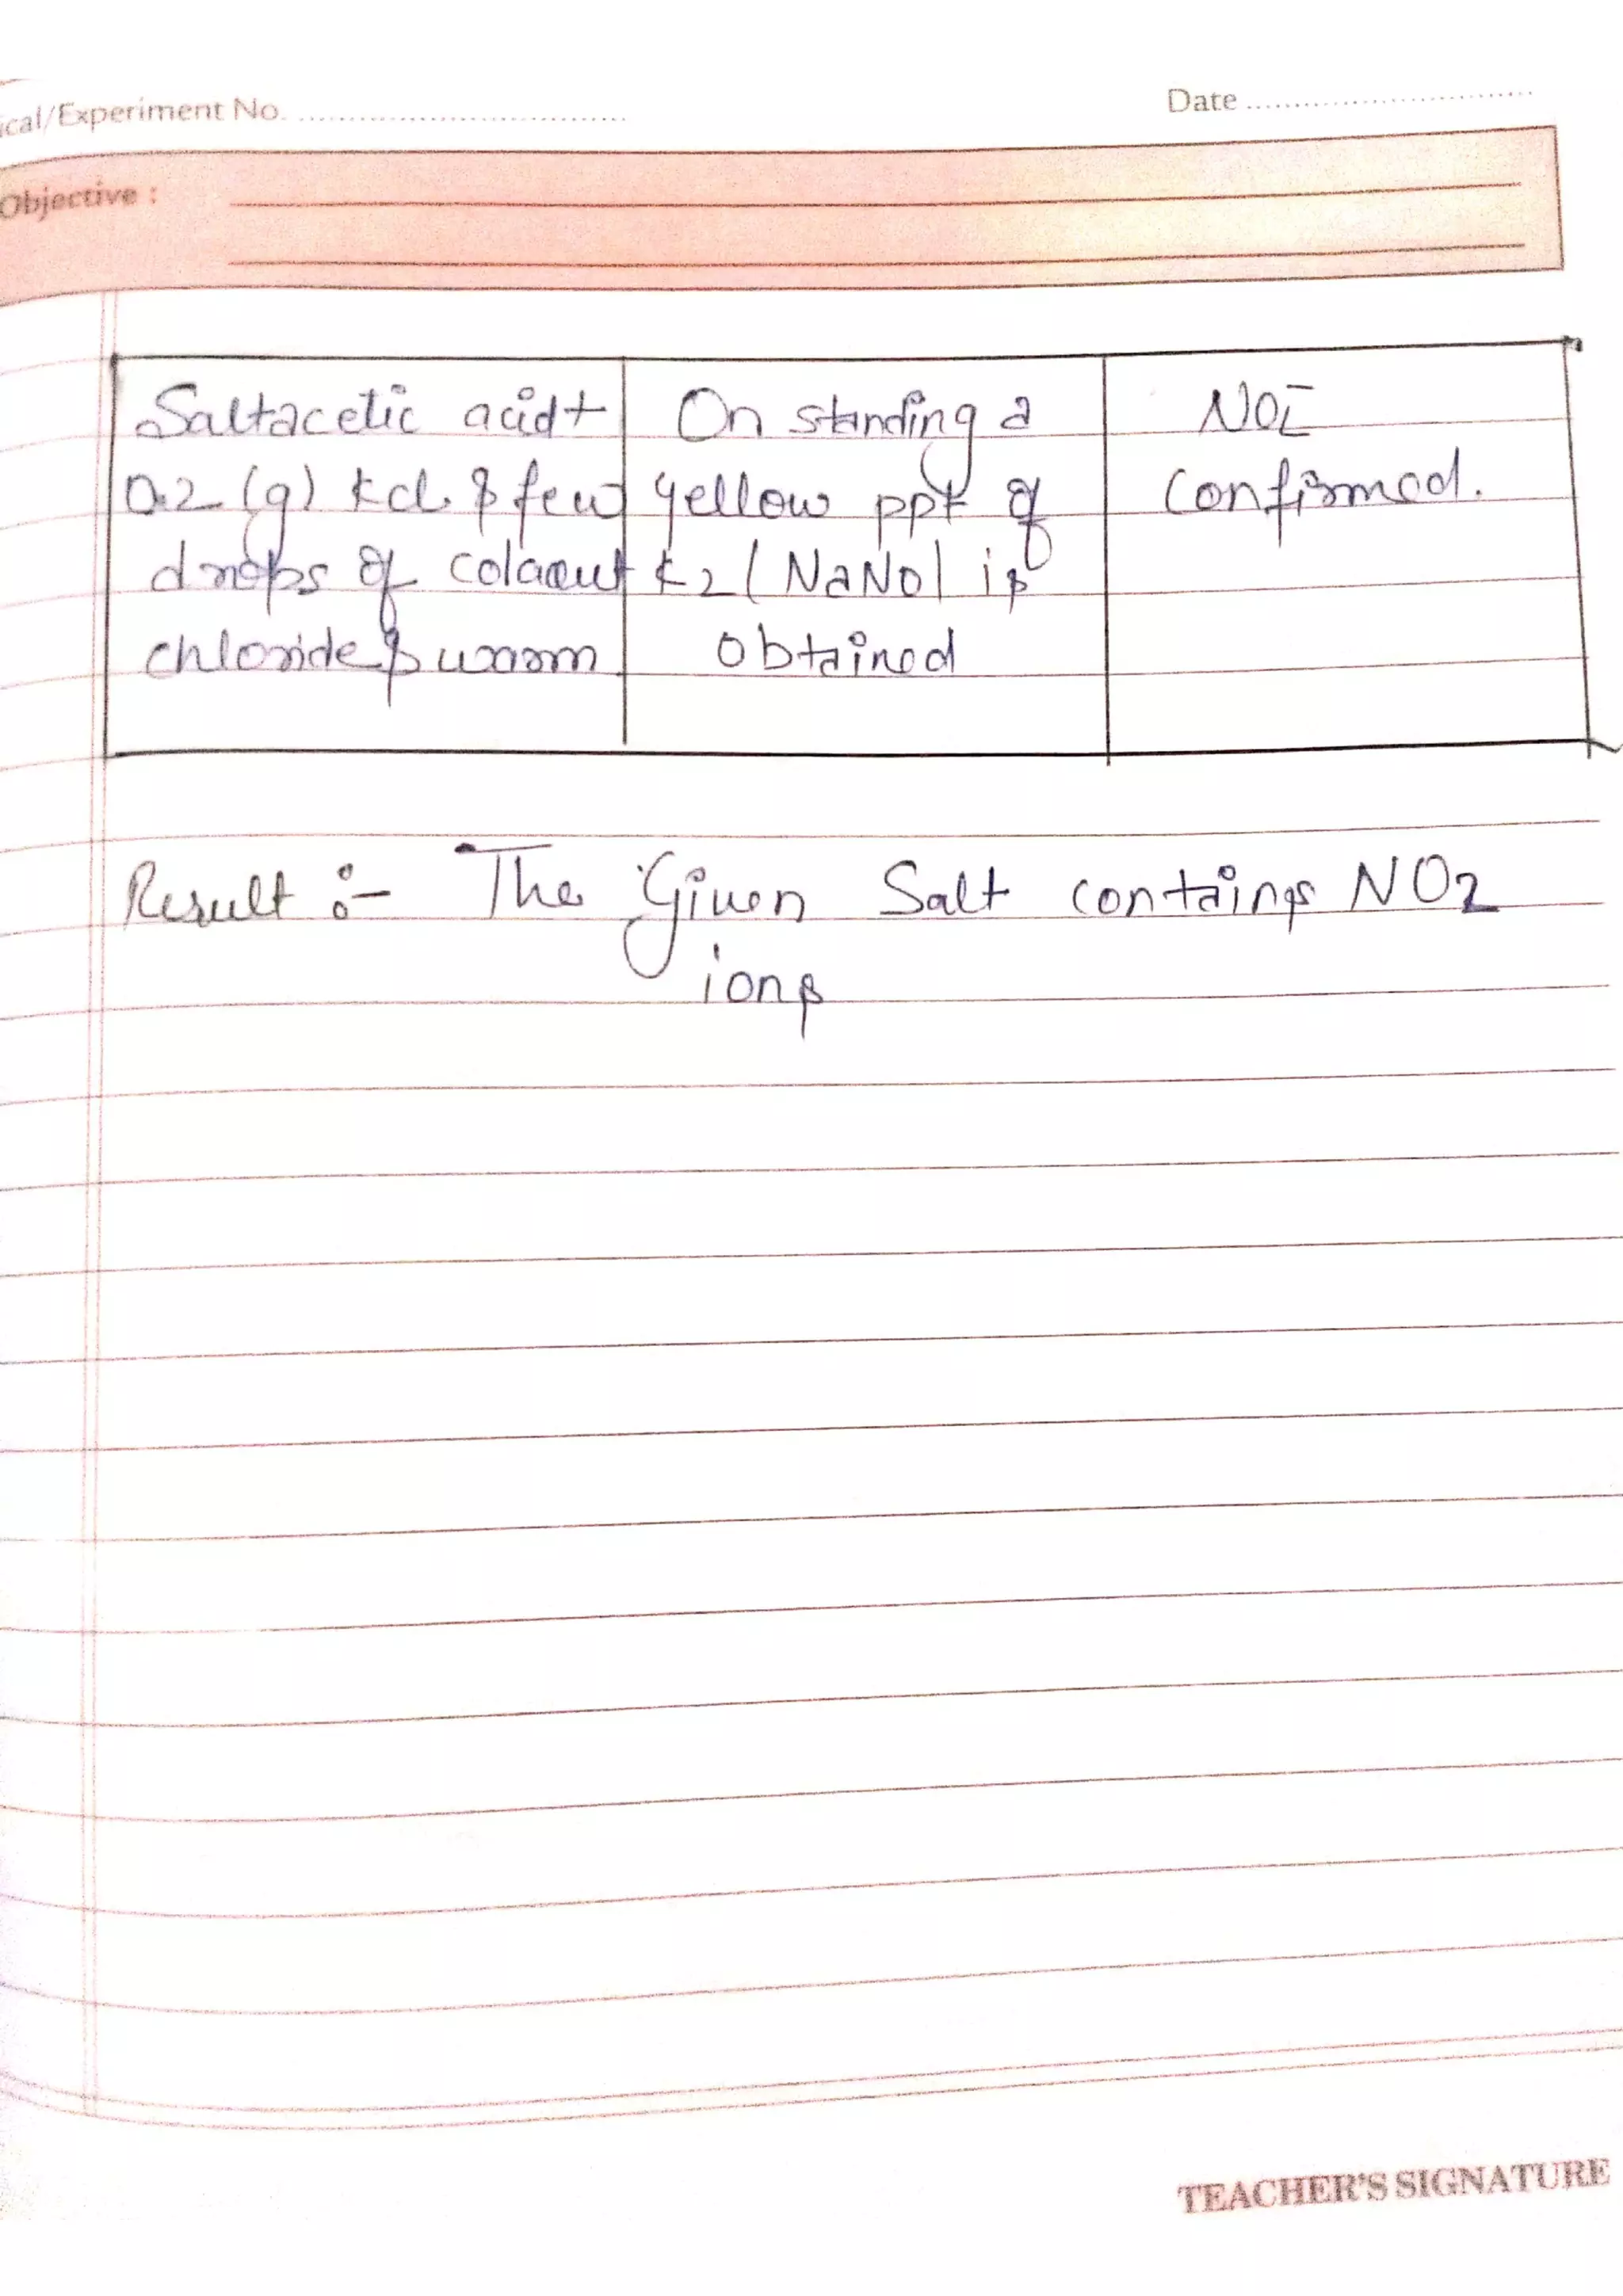 ical/Experiment No. ........................
Date ........................
Objective :
Saltacetic acid+
0.2 (g) kcl & few
drops of
chloride & warm
On standing a
yellow ppt of
K2 (NaNO) is
obtained
NO2-
confirmed.
Result :- The Given Salt contains NO2
ions
TEACHER'S SIGNATURE